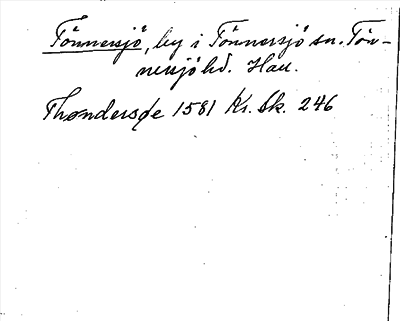 Tönnersjö, by i Tönnersjö sn. Tön-
nersjö hd. Hall.
Thøndersøe 1581 Kr. Sk. 246